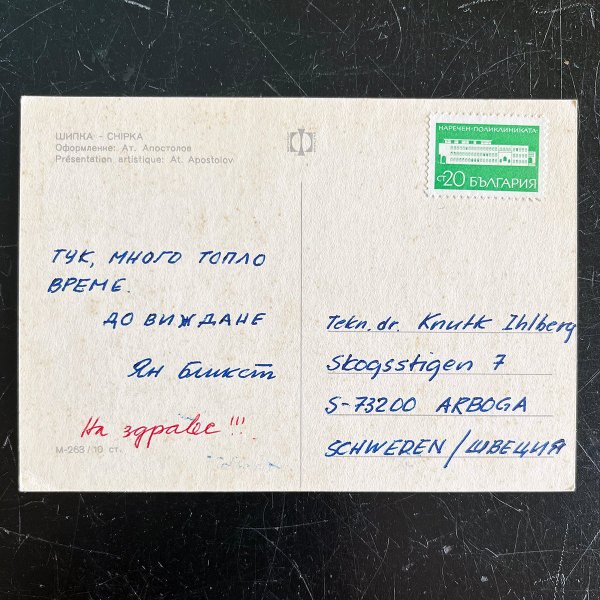 ШИПКА - CHIPKA
Оформление: Ат. Апостолов
Présentation artistique: At. Apostolov
НАРЕЧЕН-ПОЛИКЛИНИКАТА
СТ 20 БЪЛГАРИЯ
ТУК, МНОГО ТОПЛО
ВРЕМЕ.
ДО ВИЖДАНЕ
Ян Бликст
На здраве!!!
М-263 / 10 ст.
Tekn. dr. Knutk Ihlberg
Skogsstigen 7
S-73200 ARBOGA
SCHWEDEN / ШВЕЦИЯ